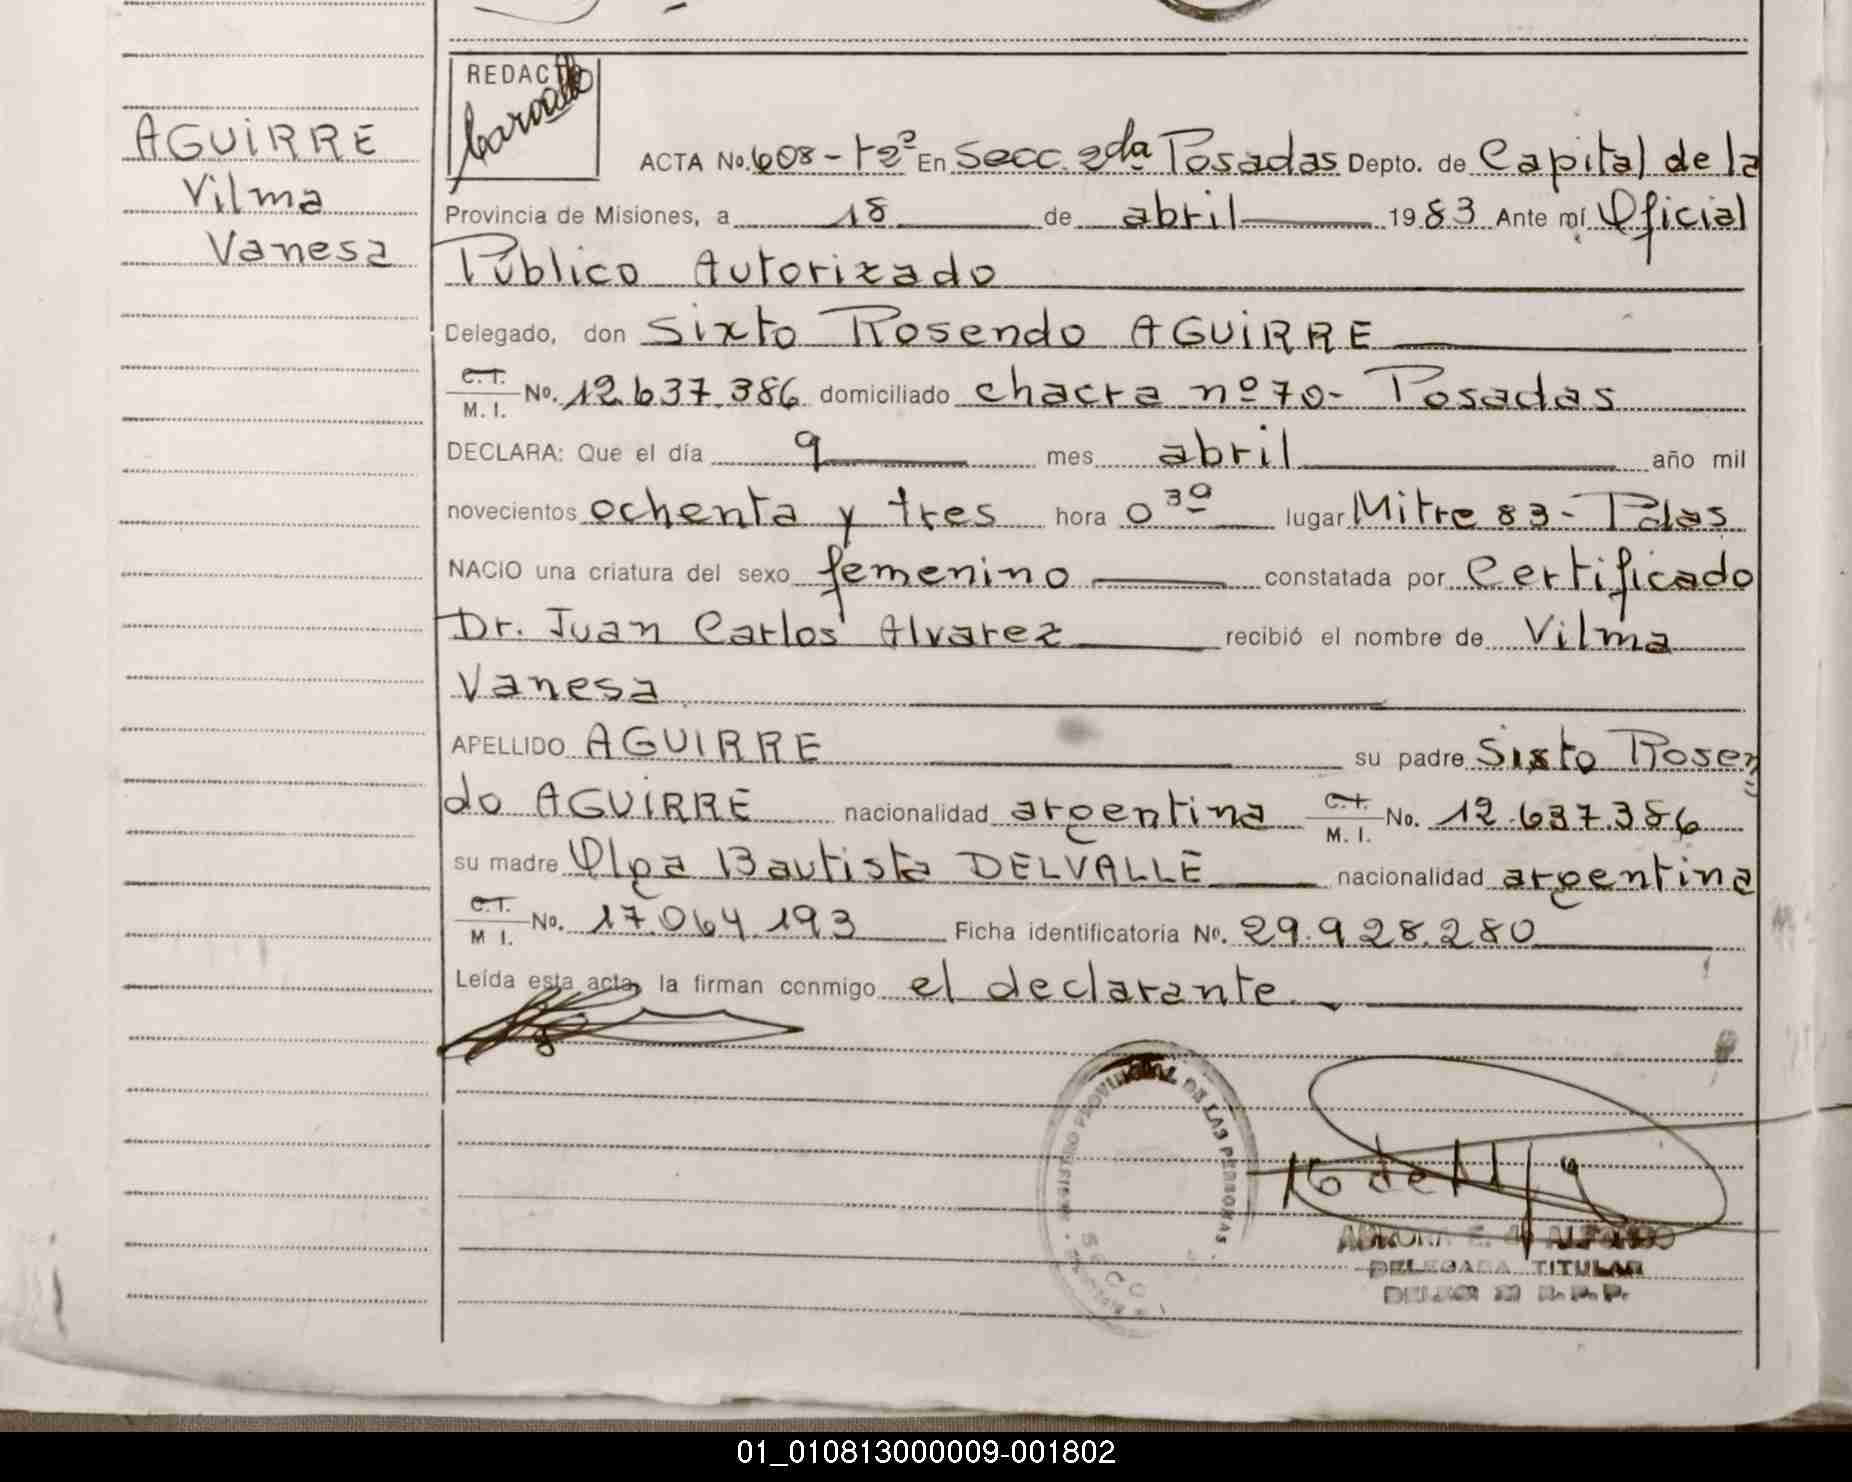 AGUIRRE
Vilma
Vanesa
REDACTÓ
ACTA No. 608 - tº 2º En Secc. 2da Posadas Depto. de Capital de la
Provincia de Misiones, a 18 de abril 1983 Ante mí Oficial
Público Autorizado
Delegado, don Sixto Rosendo AGUIRRE
C.I. M. I. No. 12.637.386 domiciliado chacra nº 70 - Posadas
DECLARA: Que el día 9 mes abril año mil
novecientos ochenta y tres hora 0 30 lugar Mitre 83 - Pdas
NACIO una criatura del sexo femenino constatada por Certificado
Dr. Juan Carlos Alvarez recibió el nombre de Vilma
Vanesa
APELLIDO AGUIRRE su padre Sixto Rosen
do AGUIRRE nacionalidad argentina C.I. M. I. No. 12.637.386
su madre Olga Bautista DELVALLE nacionalidad argentina
C.I. M I. No. 17.064.193 Ficha identificatoria No. 29.928.280
Leída esta acta, la firman conmigo el declarante.
REGISTRO PROVINCIAL DE LAS PERSONAS
DELEGADA TITULAR
01_010813000009-001802